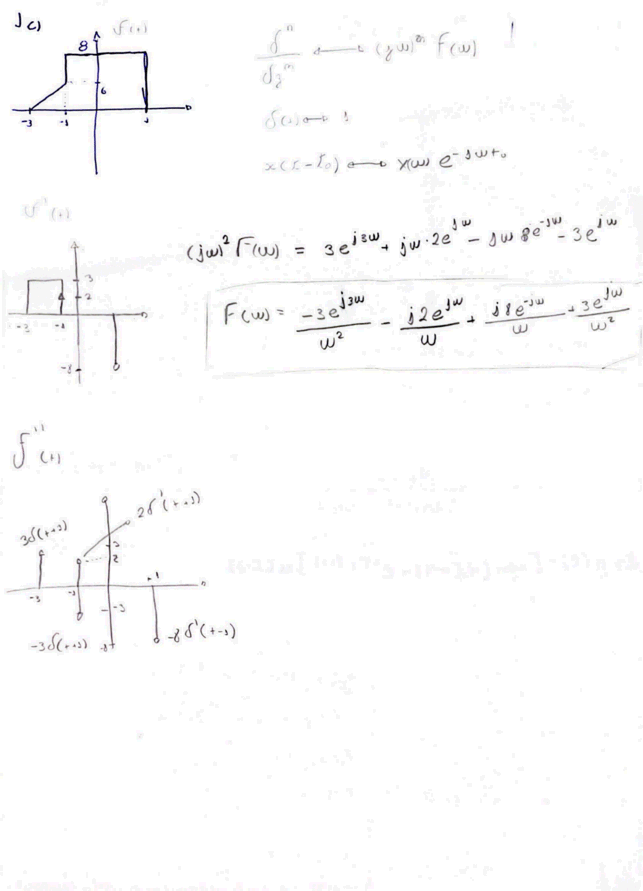 1c) f(t)
8
6
-3 -1 1
δⁿ/δtⁿ ↔ (jw)ⁿ F(w)
δ(t) ↔ 1
x(t-t₀) ↔ X(w) e^{-jwt₀}
f'(t)
3
2
-3 -1
-8
(jw)² F(w) = 3e^{j3w} + jw·2e^{jw} - jw 8e^{-jw} - 3e^{jw}
F(w) = -3e^{j3w}/w² - j2e^{jw}/w + j8e^{-jw}/w + 3e^{jw}/w²
f''(t)
2δ'(t+1)
3δ(t+3)
3
2
-3 -1 +1
-3
-3δ(t+1) -8 -8δ'(t-1)